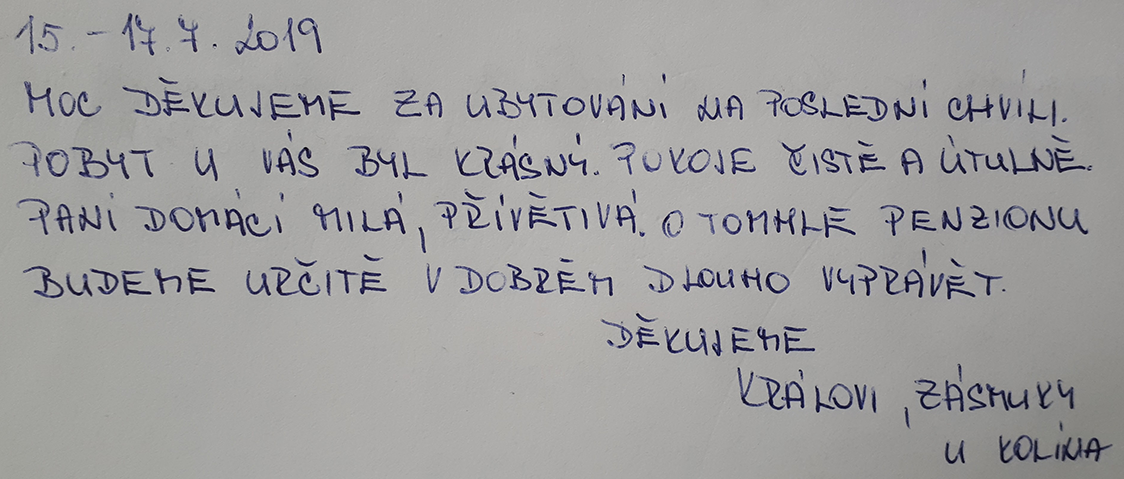 15. - 17. 7. 2019
MOC DĚKUJEME ZA UBYTOVÁNÍ NA POSLEDNÍ CHVÍLI.
POBYT U VÁS BYL KRÁSNÝ. POKOJE ČISTÉ A ÚTULNÉ.
PANÍ DOMÁCÍ MILÁ, PŘÍVĚTIVÁ. O TOMHLE PENZIONU
BUDEME URČITĚ V DOBRÉM DLOUHO VYPRÁVĚT.
DĚKUJEME
KRÁLOVI, ZÁSMUKY
U KOLÍNA